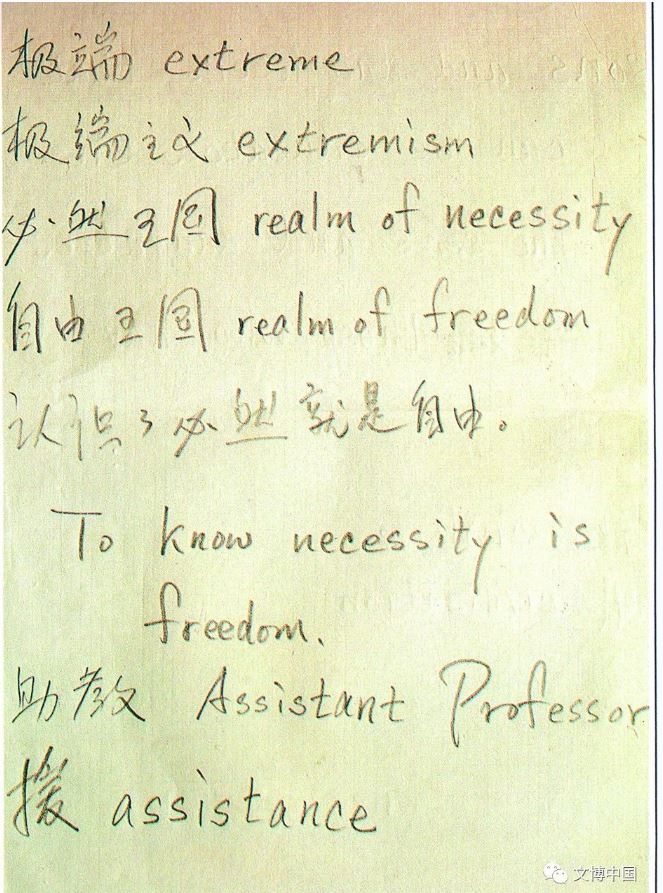 极端 extreme
极端主义 extremism
必然王国 realm of necessity
自由王国 realm of freedom
认识了必然就是自由。
To know necessity is
freedom.
助教 Assistant Professor
援 assistance
文博中国